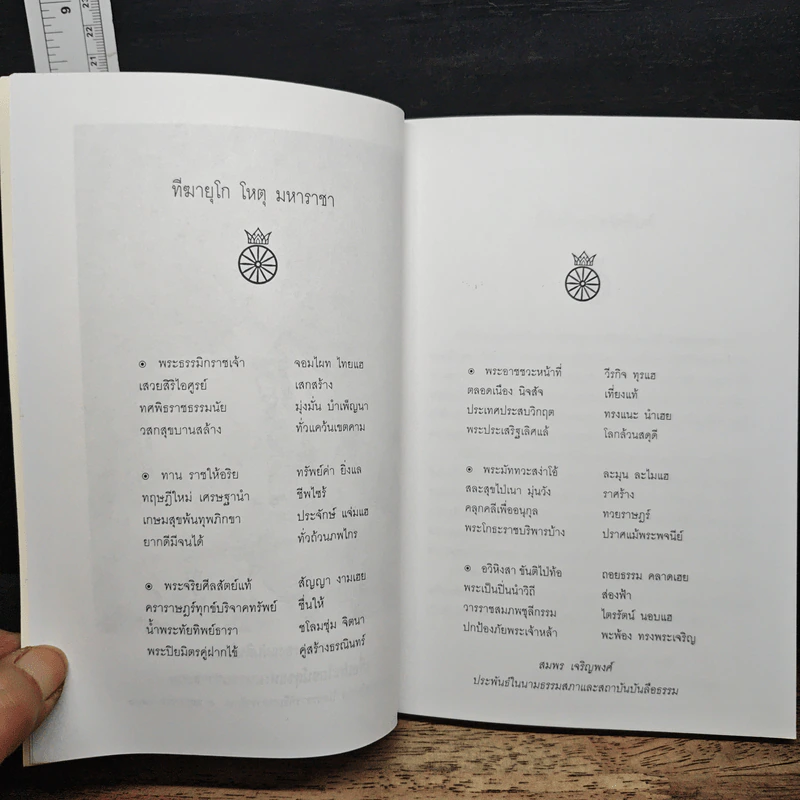 9
23
22
21
ทีฆายุโก โหตุ มหาราชา
๏ พระธรรมิกราชเจ้า จอมไผท ไทยแฮ
เสวยสิริไอศูรย์ เสกสร้าง
ทศพิธราชธรรมนัย มุ่งมั่น บำเพ็ญนา
วสกสุขบานสล้าง ทั่วแคว้นเขตคาม
๏ ทาน ราชให้อริย ทรัพย์ค่า ยิ่งแล
ทฤษฎีใหม่ เศรษฐานำ ชีพไซร้
เกษมสุขพ้นทุพภิกขา ประจักษ์ แจ่มแฮ
ยากดีมีจนได้ ทั่วถ้วนภพไกร
๏ พระจริยศีลสัตย์แท้ สัญญา งามเฮย
คราราษฎร์ทุกข์บริจาคทรัพย์ ชื่นให้
น้ำพระทัยทิพย์ธารา ชโลมชุ่ม จิตนา
พระปิยมิตรคู่ฝากไข้ คู่สร้างธรณินทร์
๏ พระอาชชวะหน้าที่ วีรกิจ ทุรแฮ
ตลอดเนือง นิจสัจ เที่ยงแท้
ประเทศประสบวิกฤต ทรงแนะ นำเฮย
พระประเสริฐเลิศแล้ โลกล้วนสดุดี
๏ พระมัททวะสง่าโอ้ ละมุน ละไมแฮ
สละสุขไปเนา มุ่นวัง ราศร้าง
คลุกคลีเพื่ออนุกูล ทวยราษฎร์
พระโกธะราชบริพารบ้าง ปราศแม้พระพจนีย์
๏ อวิหิงสา ขันติไป่ท้อ ถอยธรรม คลาดเฮย
พระเป็นปิ่นนำวิถี ส่องฟ้า
วารราชสมภพชุลีกรรม ไตรรัตน์ นอบแฮ
ปกป้องภัยพระเจ้าหล้า พะพ้อง ทรงพระเจริญ
สมพร เจริญพงศ์
ประพันธ์ในนามธรรมสภาและสถาบันบันลือธรรม